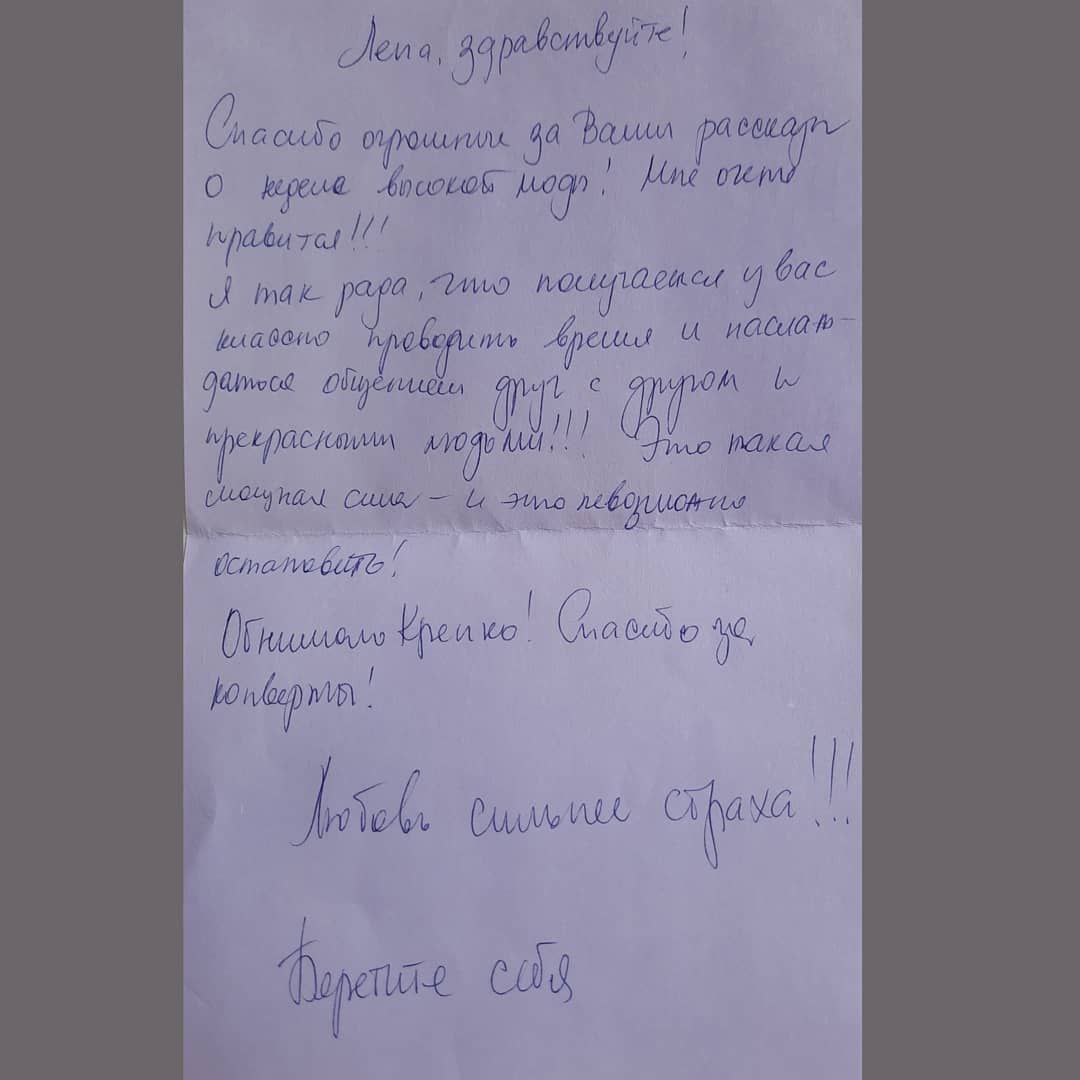 Лена, здравствуйте!
Спасибо огромные за Ваши рассказы
о неделе высокой моды! Мне очень
нравится!!!
Я так рада, что получается у вас
классно проводить время и наслаж-
даться общением друг с другом и
прекрасными людьми!!! Это такая
мощная сила - и это невозможно
остановить!
Обнимаю крепко! Спасибо за
конверты!
Любовь сильнее страха!!!
Берегите себя